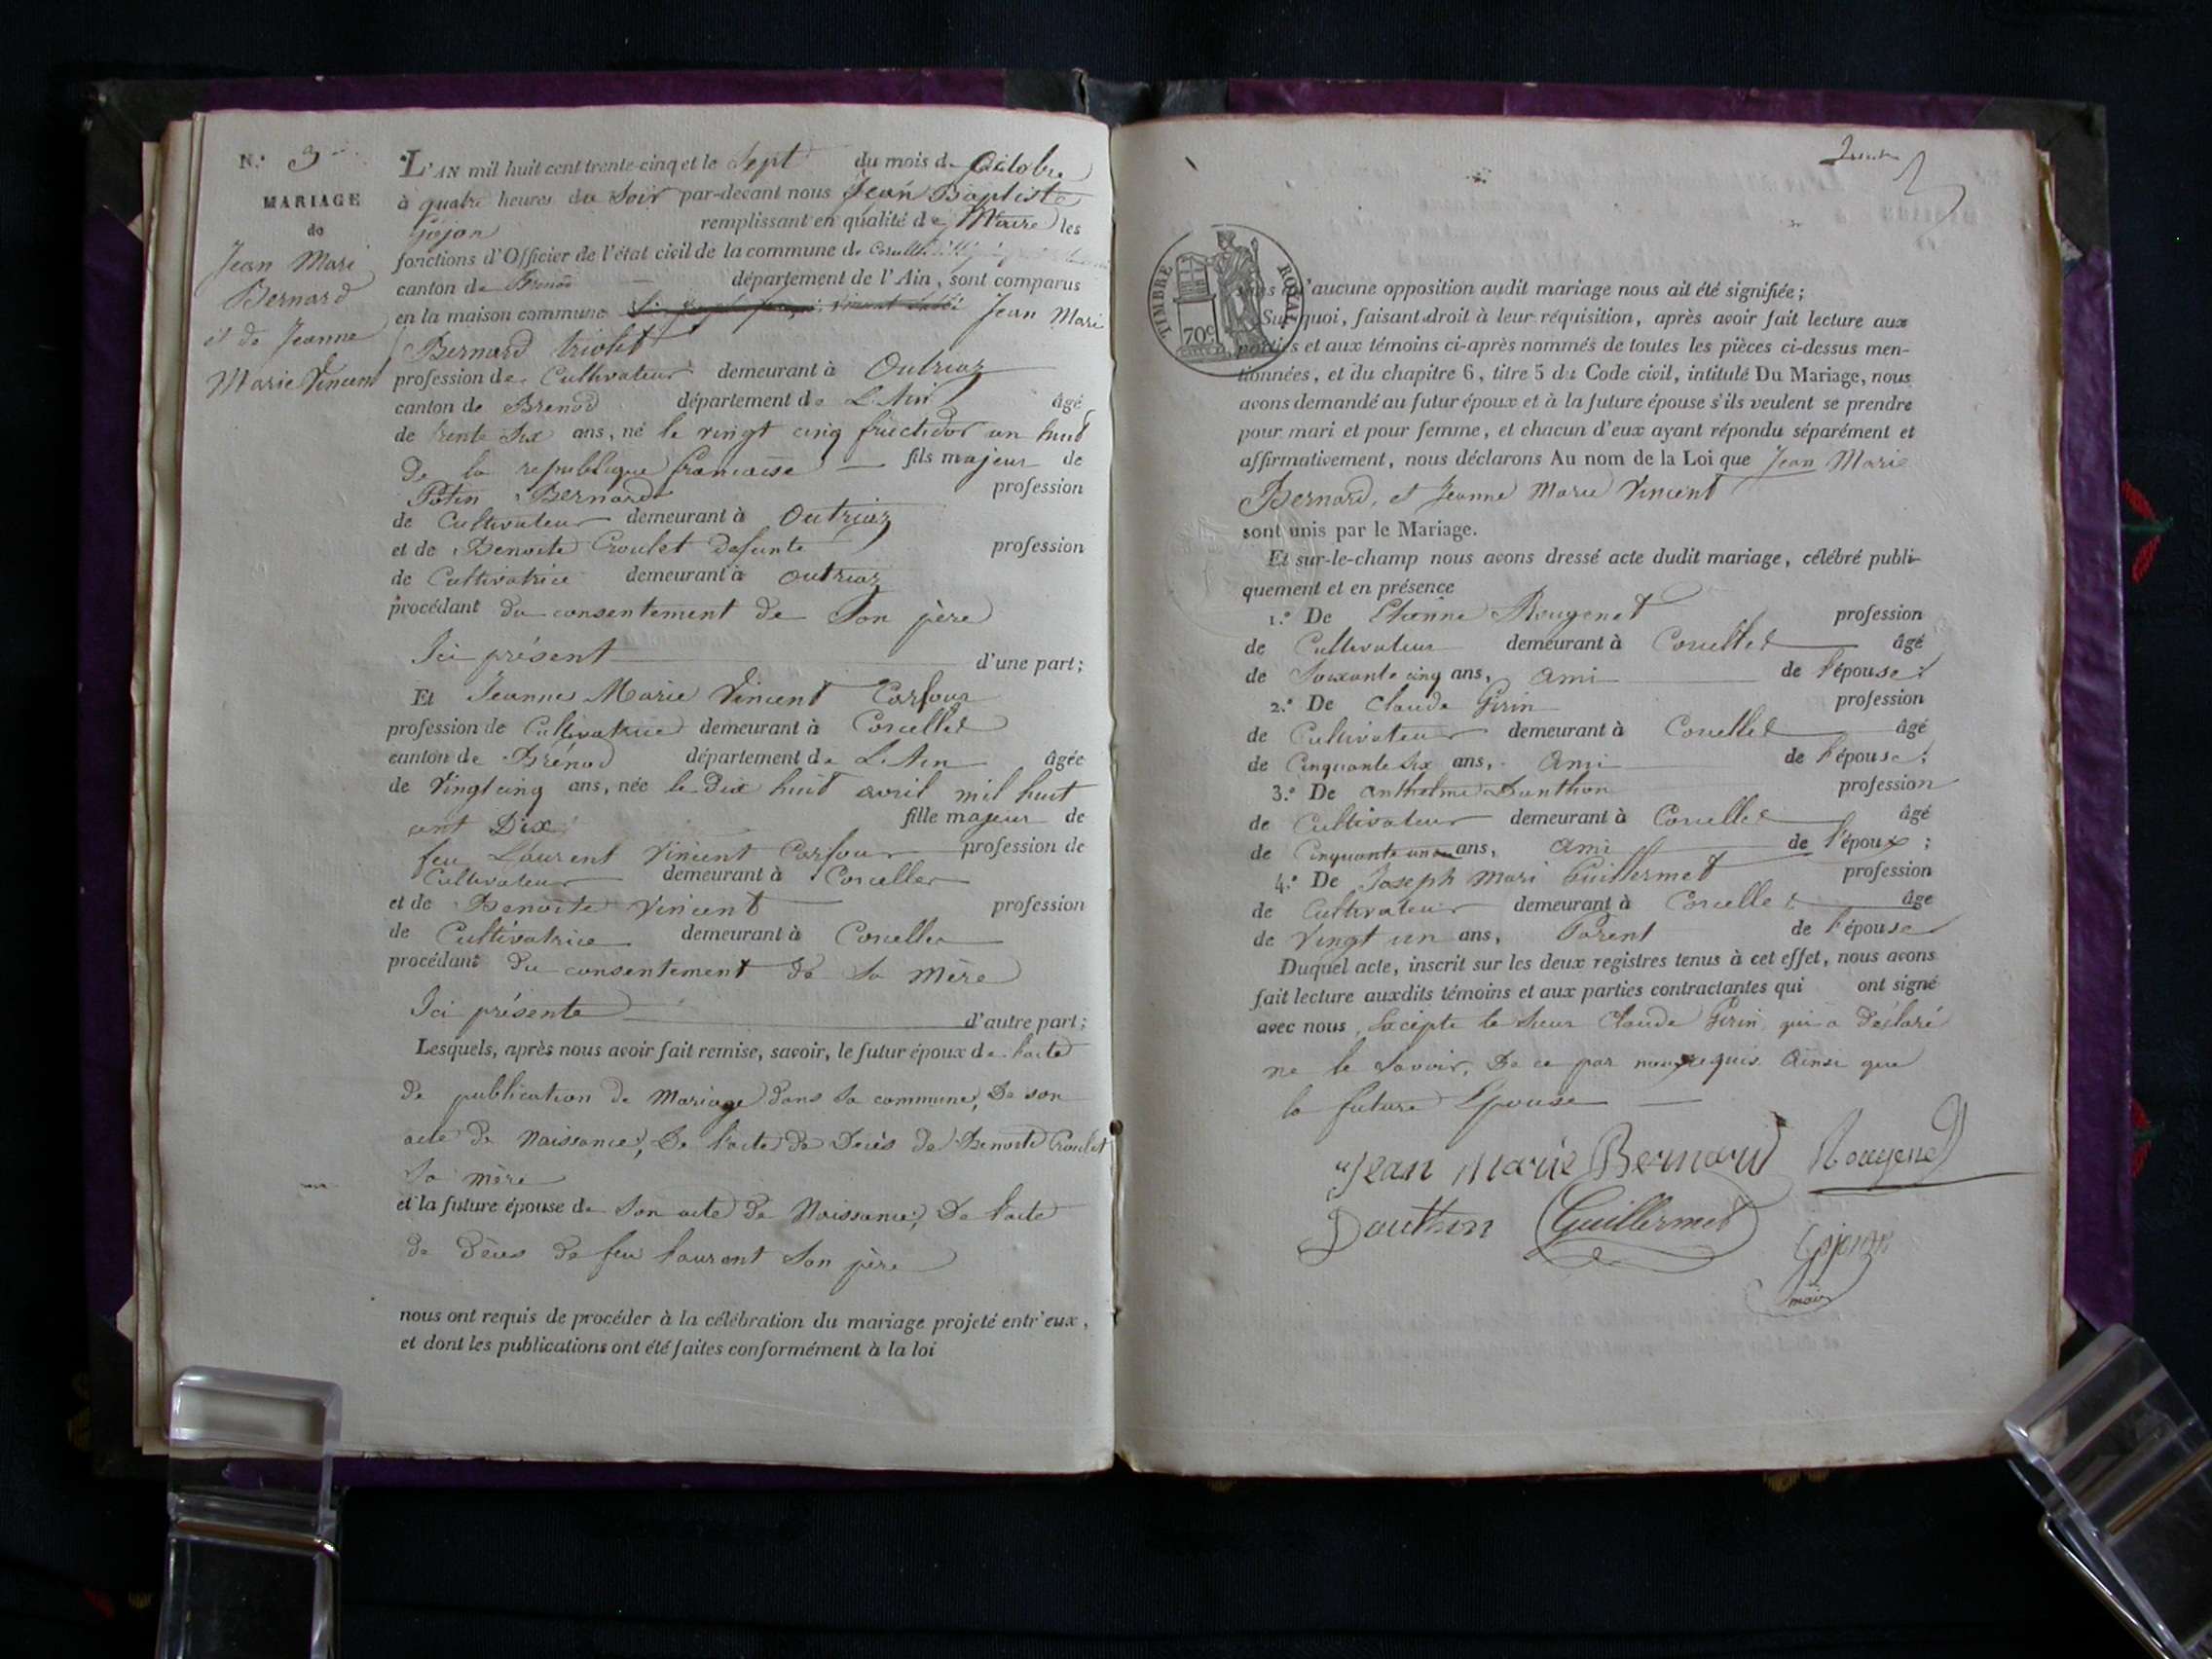 N.° 3
MARIAGE
de
Jean Mari
Bernard
et de Jeanne
Marie Vincent
L'AN mil huit cent trente-cinq et le Sept du mois d'Octobre
à quatre heures du Soir par-devant nous Jean Baptiste
Gojon remplissant en qualité de Maire les
fonctions d'Officier de l'état civil de la commune de Corcelle
canton de Brenod département de l'Ain, sont comparus
en la maison commune Jean Mari
Bernard triolet
profession de Cultivateur demeurant à Outriaz
canton de Brenod département de L'Ain âgé
de trente Six ans, né le vingt cinq fructidor an huit
de la republique francaise fils majeur de
Potin Bernard profession
de Cultivateur demeurant à Outriaz
et de Benoite Croulet defunte profession
de Cultivatrice demeurant à Outriaz
procédant du consentement de Son père
Ici présent d'une part;
Et Jeanne Marie Vincent Carfour
profession de Cultivatrice demeurant à Corcelles
canton de Brénod département de L'Ain âgée
de Vingt cinq ans, née le Dix huit avril mil huit
cent Dix fille majeur de
feu Laurent Vincent Carfour profession de
Cultivateur demeurant à Corcelles
et de Benoite Vincent profession
de Cultivatrice demeurant à Corcelles
procédant du consentement de Sa Mère
Ici présente d'autre part;
Lesquels, après nous avoir fait remise, savoir, le futur époux de l'acte
de publication de Mariage dans Sa commune, De son
acte de Naissance, De l'acte de Décès de Benoite Croulet
Sa mère
et la future épouse de Son acte de Naissance, De l'acte
de décès de feu Laurent Son père
nous ont requis de procéder à la célébration du mariage projeté entr'eux,
et dont les publications ont été faites conformément à la loi
TIMBRE ROYAL
70c
sans qu'aucune opposition audit mariage nous ait été signifiée;
Sur quoi, faisant droit à leur réquisition, après avoir fait lecture aux
parties et aux témoins ci-après nommés de toutes les pièces ci-dessus men-
tionnées, et du chapitre 6, titre 5 du Code civil, intitulé Du Mariage, nous
avons demandé au futur époux et à la future épouse s'ils veulent se prendre
pour mari et pour femme, et chacun d'eux ayant répondu séparément et
affirmativement, nous déclarons Au nom de la Loi que Jean Marie
Bernard, et Jeanne Marie Vincent
sont unis par le Mariage.
Et sur-le-champ nous avons dressé acte dudit mariage, célébré publi-
quement et en présence
1.° De Etienne Rougenet profession
de Cultivateur demeurant à Corcelles âgé
de Soixante cinq ans, Ami de l'épouse;
2.° De Claude Girin profession
de Cultivateur demeurant à Corcelles âgé
de Cinquante Six ans, Ami de l'épouse;
3.° De Anthelme Danthon profession
de Cultivateur demeurant à Corcelles âgé
de Cinquante un ans, Ami de l'époux;
4.° De Joseph Mari Guillermet profession
de Cultivateur demeurant à Corcelles âgé
de Vingt un ans, Parent de l'épouse
Duquel acte, inscrit sur les deux registres tenus à cet effet, nous avons
fait lecture auxdits témoins et aux parties contractantes qui ont signé
avec nous, Excepte le Sieur Claude Girin qui a déclaré
ne le Savoir, De ce par nous requis Ainsi que
la future Epouse
Jean Marie Bernard Rougenet
Dauthon Guillermet
Gojon
maire